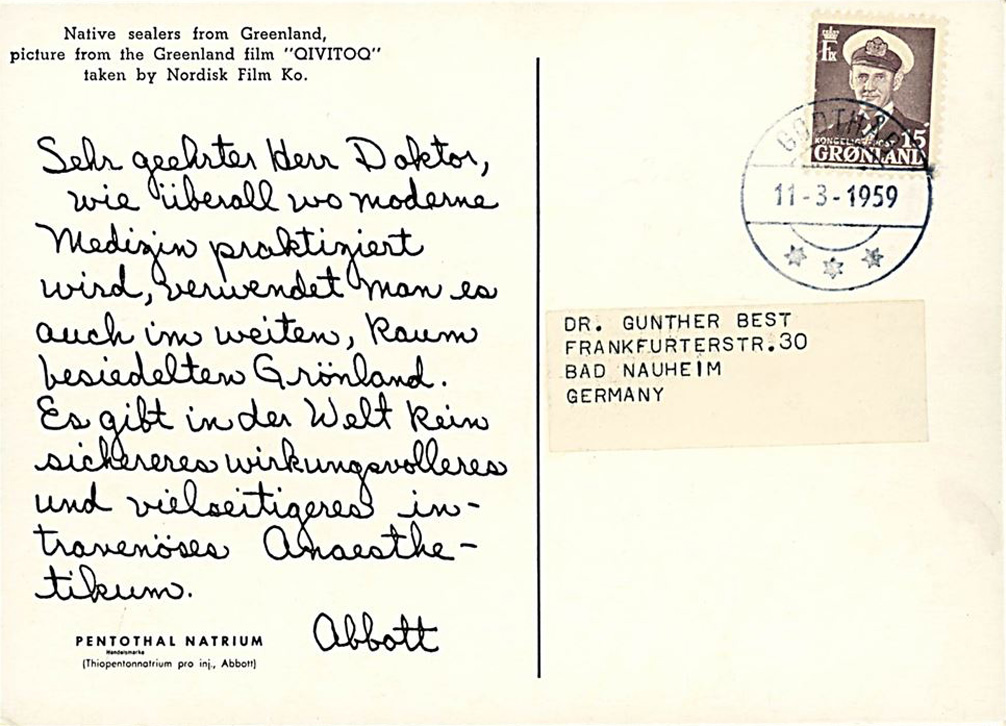 Native sealers from Greenland,
picture from the Greenland film "QIVITOQ"
taken by Nordisk Film Ko.
Sehr geehrter Herr Doktor,
wie überall wo moderne
Medizin praktiziert
wird, verwendet man es
auch im weiten, kaum
besiedelten Grönland.
Es gibt in der Welt kein
sichereres wirkungsvolleres
und vielseitigeres in-
travenöses Anaesthe-
tikum.
Abbott
PENTOTHAL NATRIUM
Handelsmarke
(Thiopentonnatrium pro inj., Abbott)
KONGELIG POST 15
GRØNLAND
GODTHÅB
11-3-1959
DR. GUNTHER BEST
FRANKFURTERSTR.30
BAD NAUHEIM
GERMANY